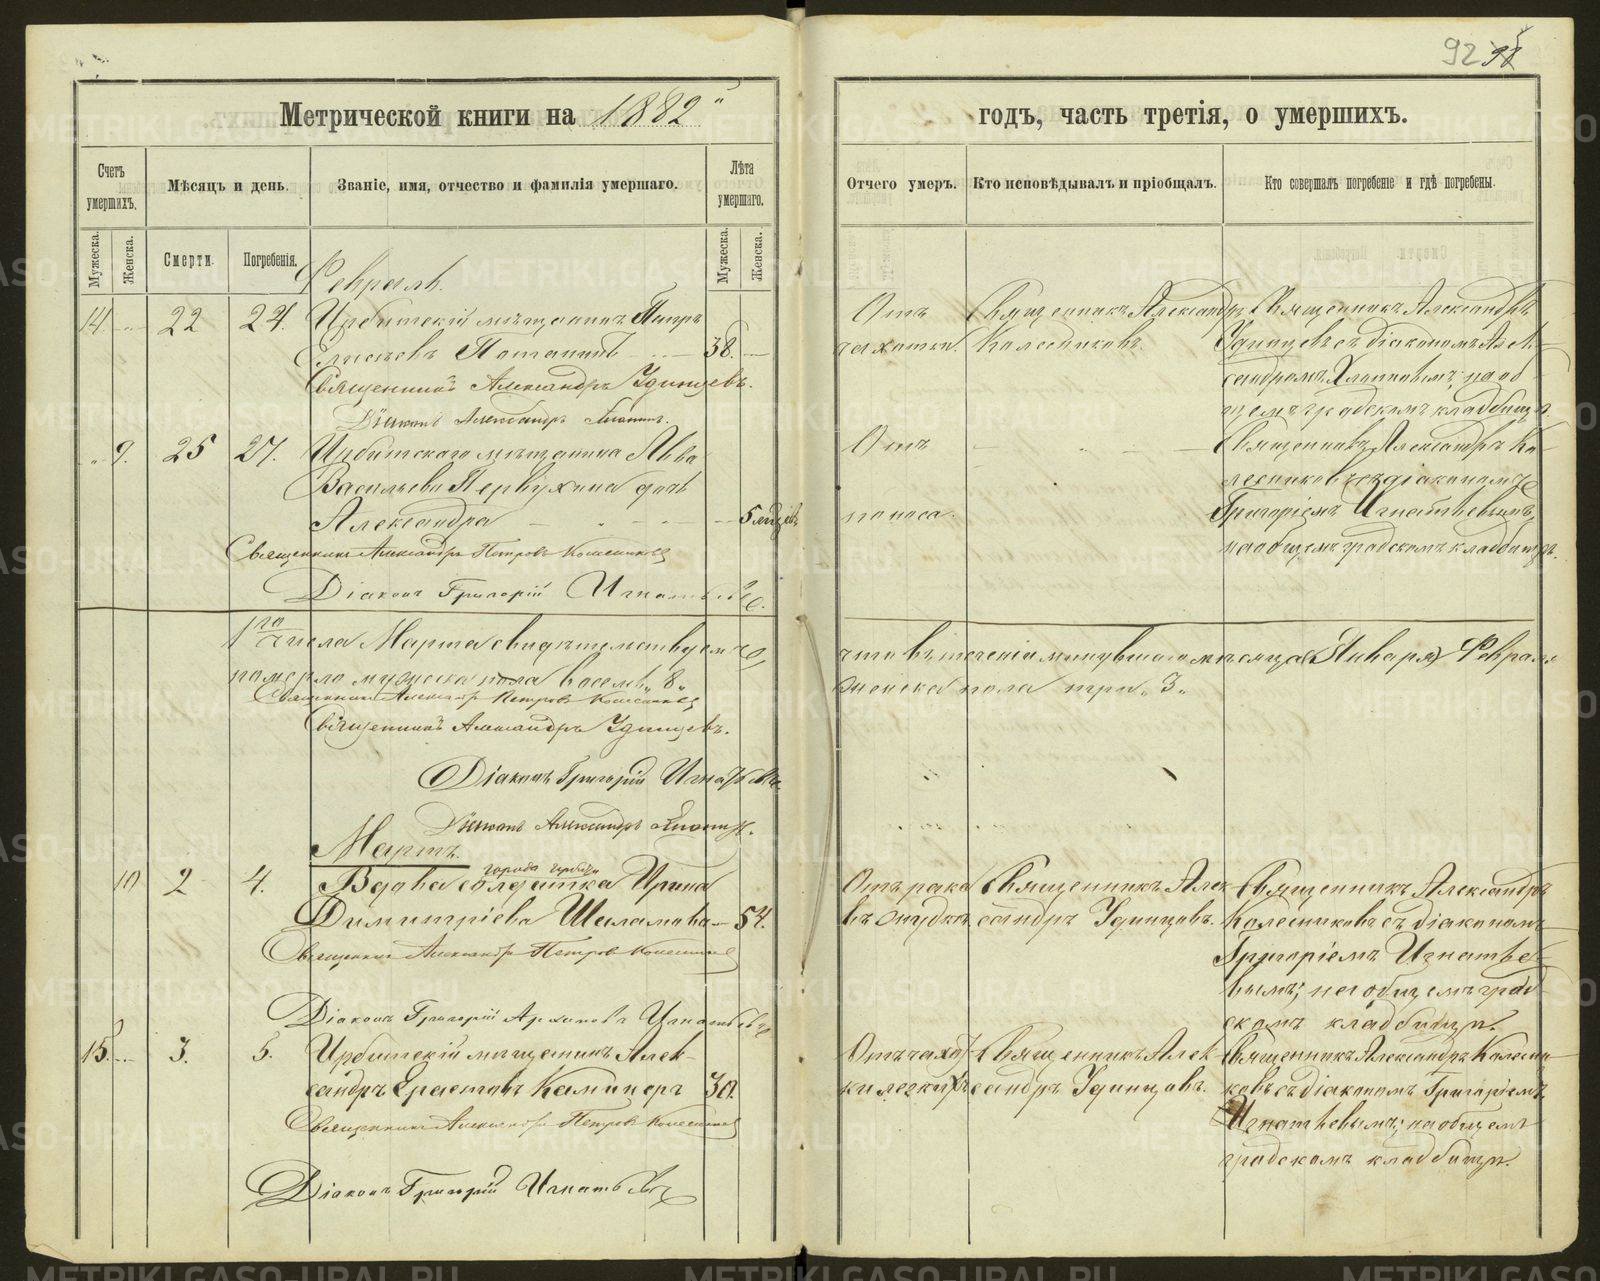 92 98
Метрической книги на 1882 й
годъ, часть третія, о умершихъ.
Счетъ умершихъ.
Мѣсяцъ и день.
Званіе, имя, отчество и фамилія умершаго.
Лѣта умершаго.
Отчего умеръ.
Кто исповѣдывалъ и пріобщалъ.
Кто совершалъ погребеніе и гдѣ погребены.
Мужеска.
Женска.
Смерти.
Погребенія.
Мужеска.
Женска.
Февраль.
14. 22 24. Ирбитскій мѣщанинъ Петръ
Елисѣевъ Потанинъ 38.
Священникъ Александръ Удинцевъ.
Діаконъ Александръ
Отъ
чахотки.
Священникъ Александръ
Колесниковъ.
Священникъ Александръ
Удинцевъ съ діакономъ Алек-
сандромъ на об-
щемъ градскомъ кладбищѣ
9. 25 27. Ирбитскаго мѣщанина Льва
Васильева Первухина дочь
Александра 5 мѣсяцевъ
Священникъ Александръ Петровъ Колесниковъ
Діаконъ Григорій Игнатьевъ.
Отъ
поноса.
Священникъ Александръ Ко-
лесниковъ съ діакономъ
Григоріемъ Игнатьевымъ,
на общемъ градскомъ кладбищѣ.
1го числа Марта свидѣтельствуемъ,
что въ теченіи минувшаго мѣсяца Января Февраля
померло мужеска пола восемь „8„
женска пола три „3„
Священникъ Александръ Петровъ Колесниковъ
Священникъ Александръ Удинцевъ.
Діаконъ Григорій Игнатьевъ.
Діаконъ Александръ
Мартъ.
города Ирбита
10 2 4. Вдова солдатка Ирина
Димитріева Шаламова 54.
Священникъ Александръ Петровъ Колесниковъ
Діаконъ Григорій Архиповъ Игнатьевъ
Отъ рака
въ желудкѣ.
Священникъ Алек-
сандръ Удинцовъ.
Священникъ Александръ
Колесниковъ съ діакономъ
Григоріемъ Игнатье-
вымъ; на общемъ град-
скомъ кладбищѣ.
15. 3. 5. Ирбитскій мѣщанинъ Алек-
сандръ Ерастовъ 30.
Священникъ Александръ Петровъ Колесниковъ
Діаконъ Григорій Игнатьевъ
Отъ чахот-
ки легкихъ
Священникъ Алек-
сандръ Удинцовъ.
Священникъ Александръ Колесни-
ковъ съ діакономъ Григоріемъ
Игнатьевымъ; на общемъ
градскомъ кладбищѣ.